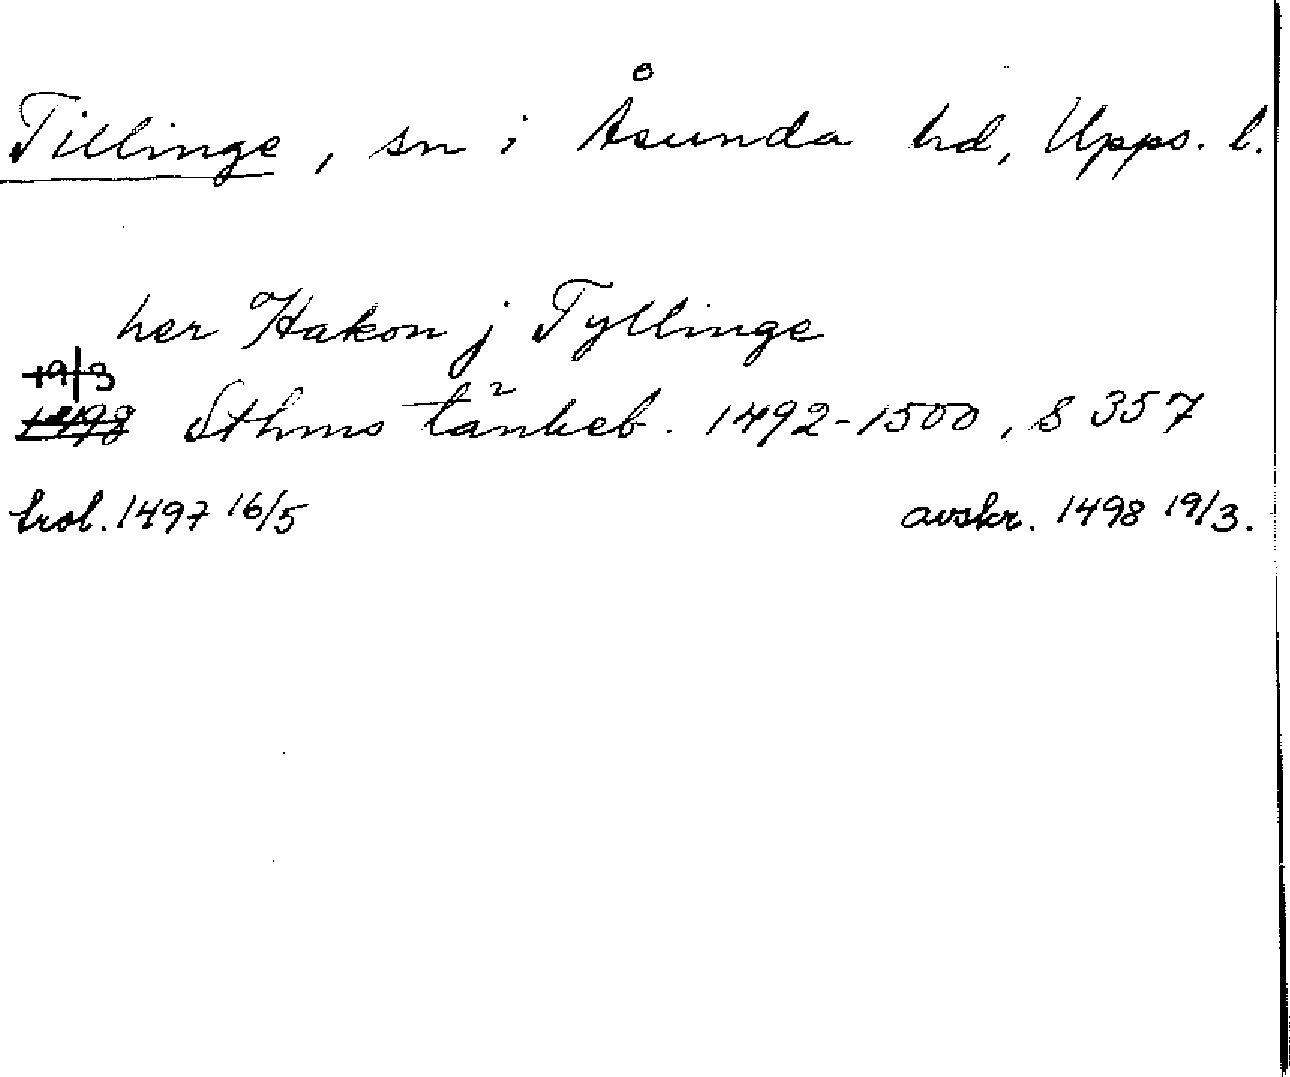 Tillinge, sn i Åsunda hd, Upps. l.
her Hakon j Tyllinge
19/3
1498 Sthms tänkeb. 1492-1500, s 357
trol. 1497 16/5 avskr. 1498 19/3.